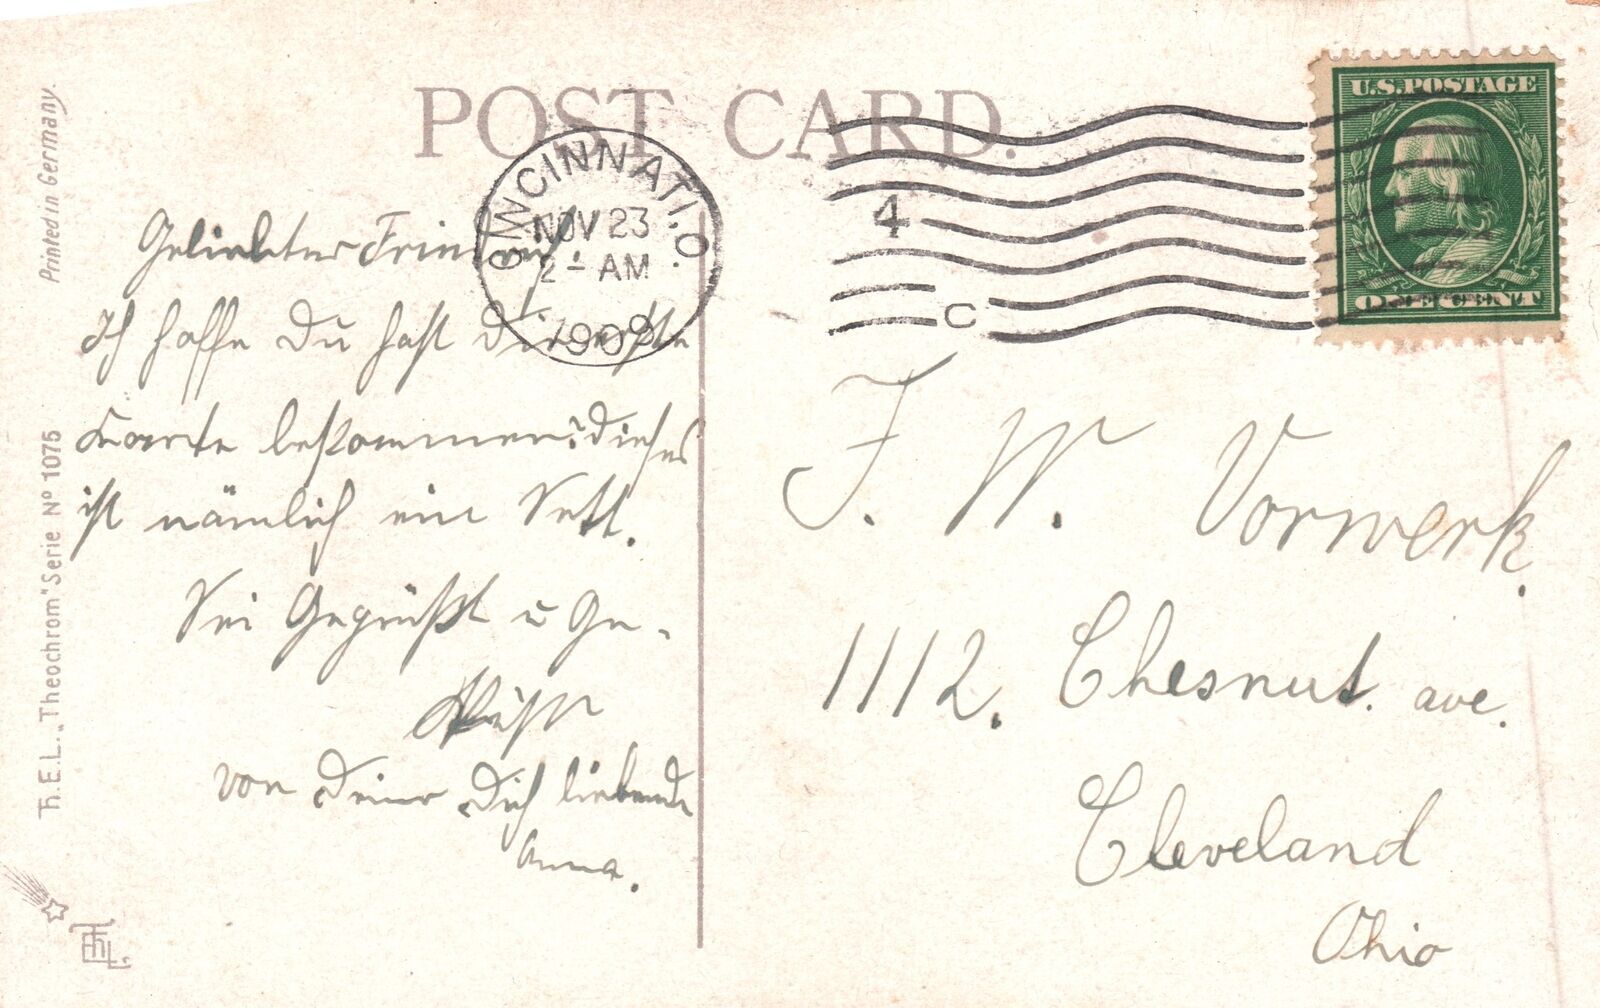 POST CARD.
U.S. POSTAGE
ONE CENT
CINCINNATI. O.
NOV 23
2- AM
1909
4
C
Geliebter
Ich hoffe Du hast die erste
Karte bekommen? dieses
ist nämlich ein Sett.
Sei Gegrüßt u Ge-
küßt
von Deiner Dich liebende
Anna.
F. W. Vorwerk.
1112. Chesnut. ave.
Cleveland
Ohio
Printed in Germany.
Th.E.L. „Theochrom" Serie Nº 1075
ThEL.